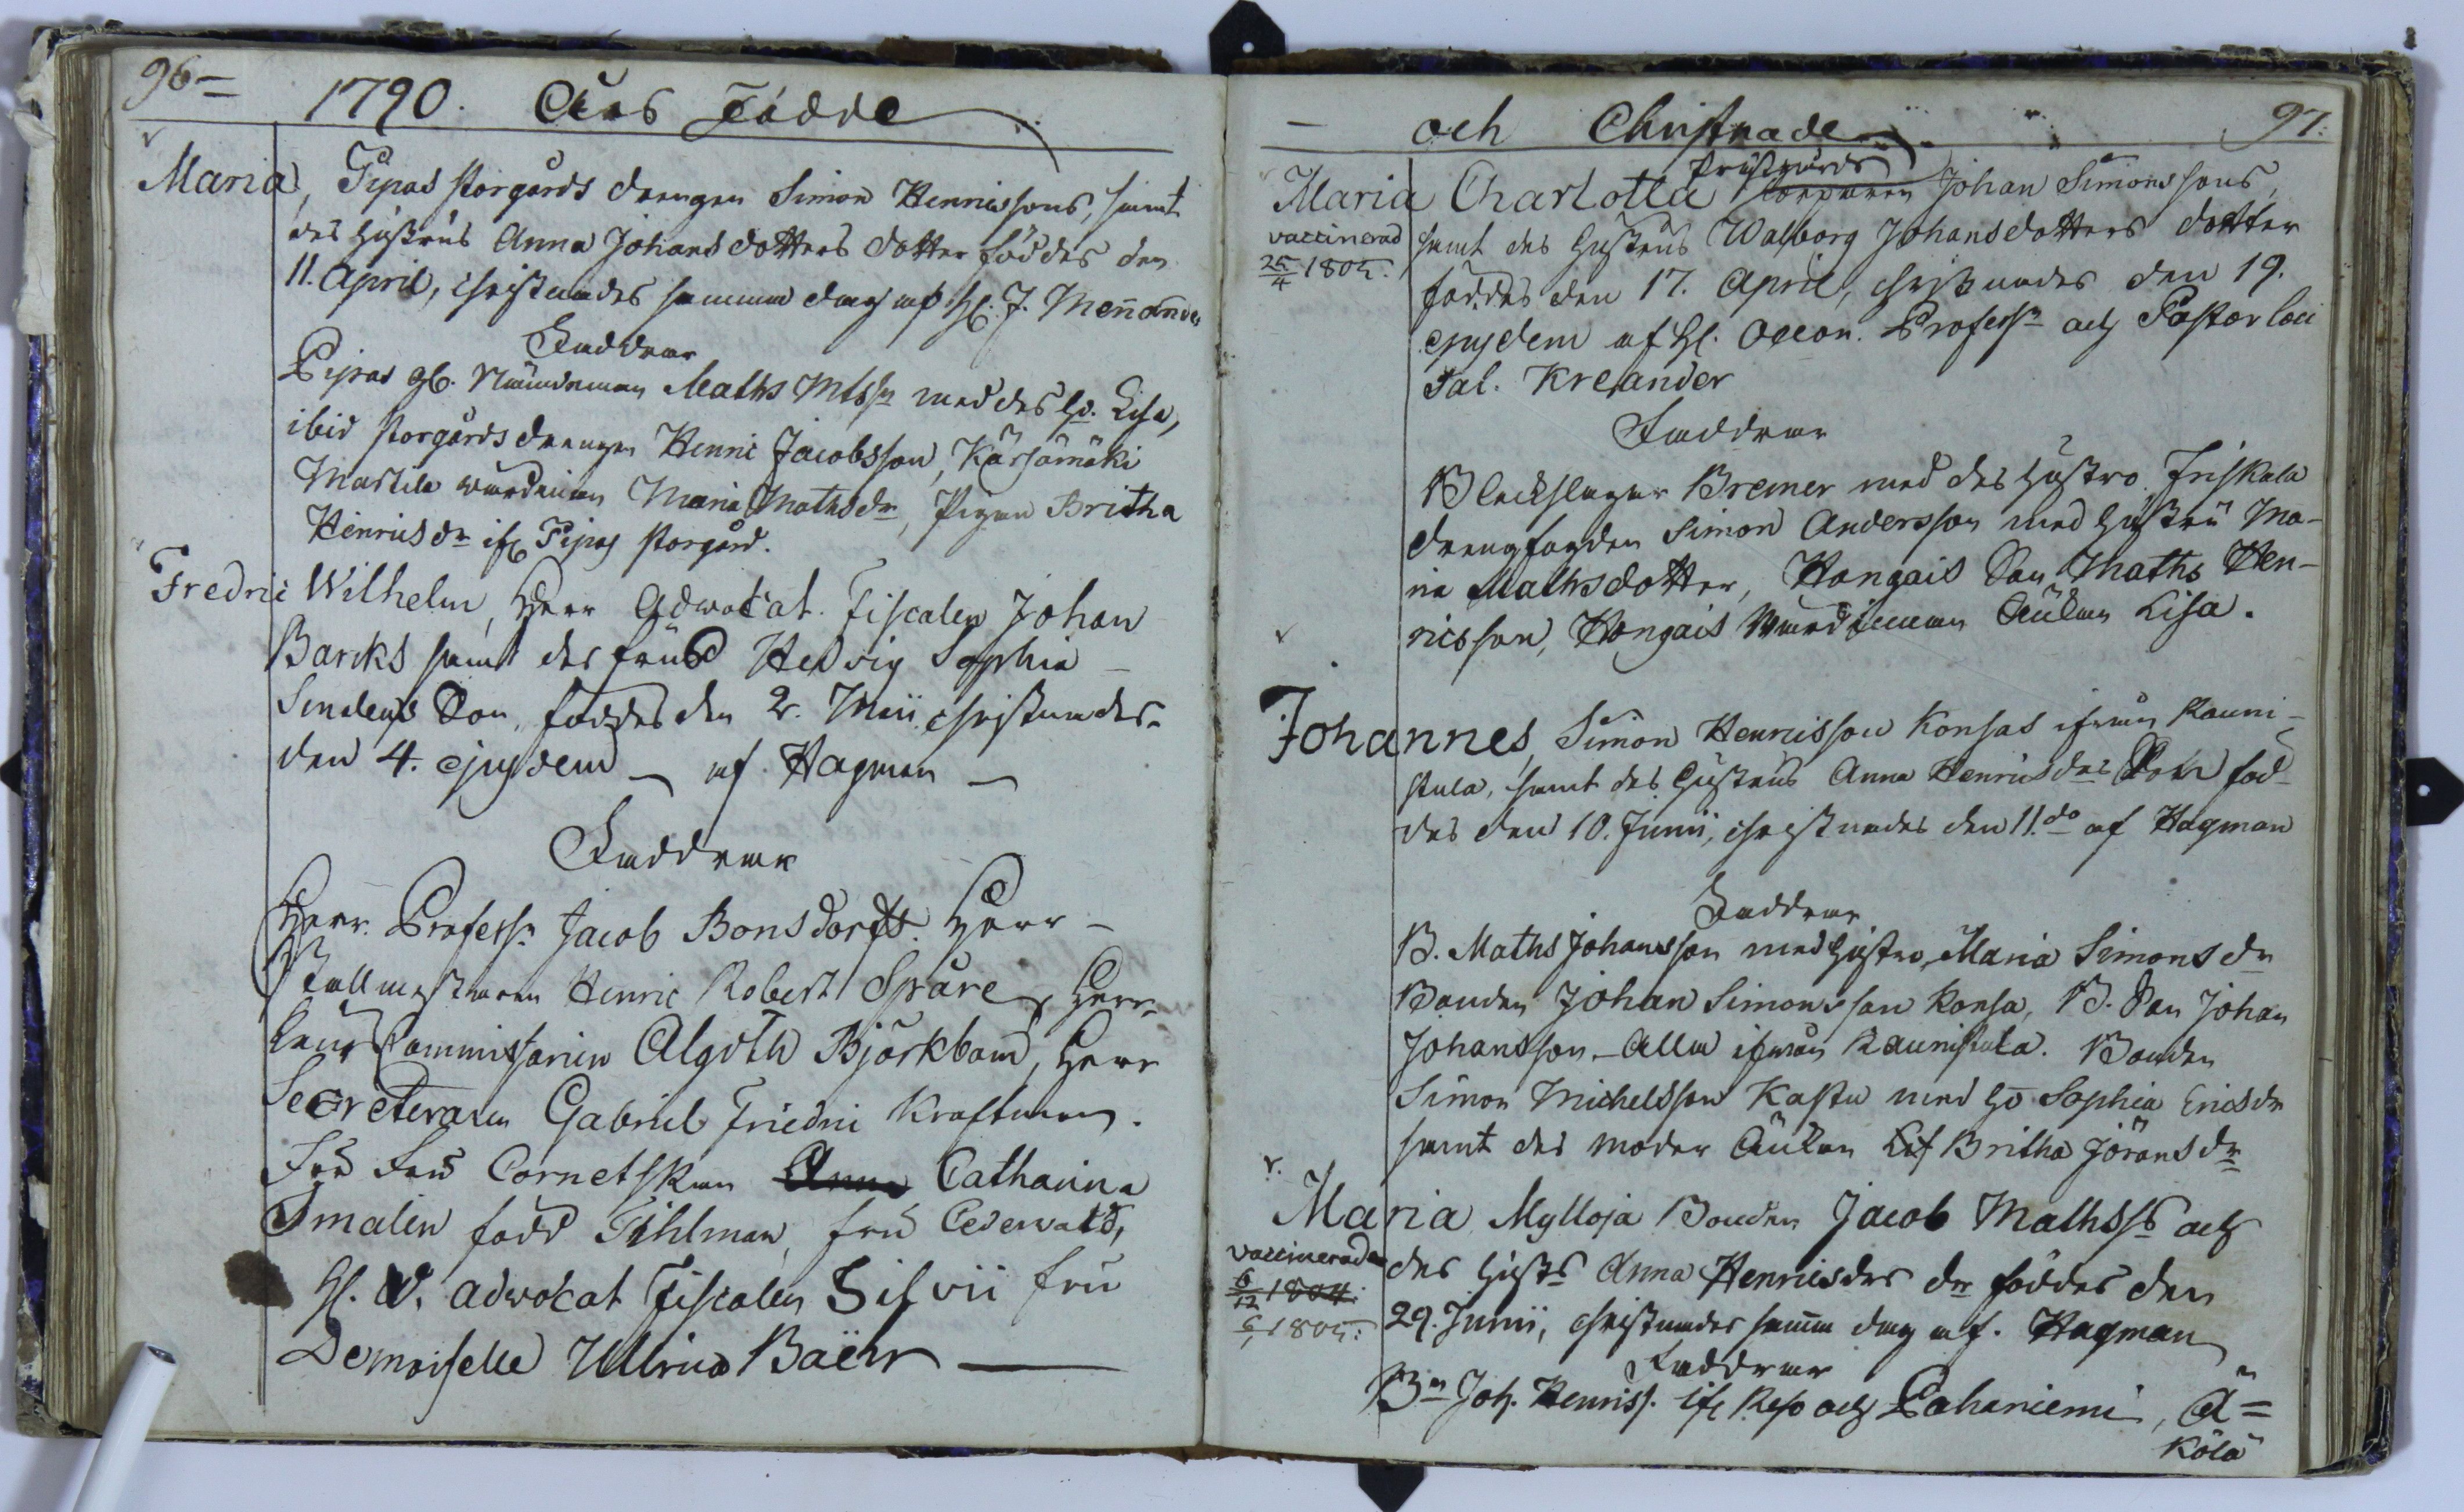 96
1790. Åhrs Födde
Maria, Pipas storgårds drengen Simon Henricssons, samt
des hustrus Anna Johans dotters dotter föddes den
11. April, christnades samma dag af H. J. Menander
Faddrar
Pipas gl. Nämdeman Maths Mtsson med des h. Lisa,
ibid storgårds drengen Henric Jacobsson, Kärsämäki
Martila wärdinnan Maria Mathsdr, Pigan Britha
Henricsdr if Pipas storgård.
Fredric Wilhelm, Herr Adwocat Fiscalen Johan
Barcks samt des frus Hedvig Sophia
Son, föddes den 2. Maii christnades
den 4. ejusdem af Hagman
Faddrar
Herr Professr Jacob Bonsdorff. Herr
Stallmästaren Henric Robert Spåre, Herr
Commissarien Algoth Björkbom, Herr
Secreteraren Gabriel Friedric Kraftman.
Fru Cornetskan Anna Catharina
Smalin född Tihlman, fru Cederwald,
H. V. Adwocat Fiscalen Silvii fru
Demoiselle Ullrica Baëhr
och Christnade
97.
Prästgårds
Maria Charlotta Torparen Johan Simonssons,
samt des hustrus Walborg Johansdotters dotter
vaccinerad
25/4 1805.
föddes den 17. April, christnades den 19.
ejusdem af H. Oecon. Professr och Pastor loci
Sal. Kreander
Faddrar
Bleckslagar Bremer med des hustro. Friskala
drengfogden Simon Andersson med hustru Ma-
ria Mathsdotter, Hongais Son Maths Hen-
ricsson, Hongais Wärdinnan Änkan Lisa.
Johannes, Simon Henricsson Konsas ifrån Rauni-
stula, samt des hustrus Anna Henricsdrs Son föd-
des den 10. Junii, christnades den 11. do af Hagman
Faddrar
B. Maths Johansson med hustro Maria Simonsdr
Bonden Johan Simonsson Konsa, B. Son Johan
Johansson Alla ifrån Raunistula. Bonden
Simon Michelsson Kastu med ho Sophia Ericsdr
samt des moder Änkan Britha Jöransdr
Maria Mylloja Bonden Jacob Mathss och
vaccinerad
6/12 1804.
1805.
des hustr Anna Henricsdrs dr föddes den
29. Junii, christnades samma dag af Hagman
Faddrar
Bn Joh. Henricss. if Reso och Pahaniemi, Ä=
kölä